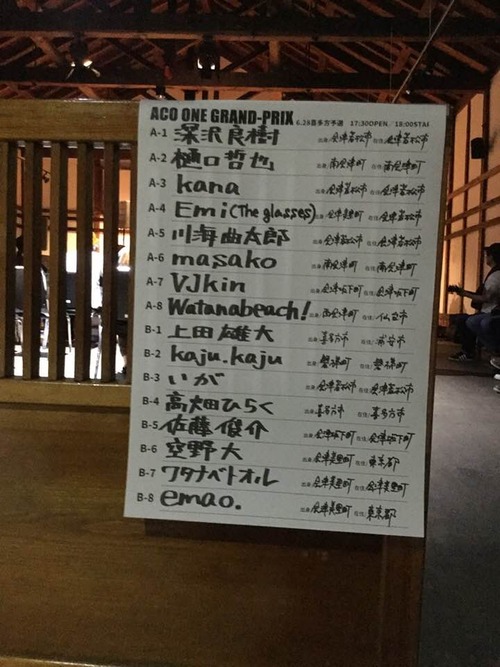 ACO ONE GRAND-PRIX 6.28喜多方予選 17:30OPEN/18:00START
A-1 深沢良樹 出身/会津若松市 在住/会津若松市
A-2 樋口哲也 出身/南会津町 在住/南会津町
A-3 kana 出身/会津若松市 在住/会津若松市
A-4 Emi(The glasses) 出身/会津美里町 在住/会津若松市
A-5 川海曲太郎 出身/会津若松市 在住/会津若松市
A-6 masako 出身/南会津町 在住/南会津町
A-7 VJkin 出身/会津坂下町 在住/会津坂下町
A-8 Watanabeach! 出身/西会津町 在住/仙台市
B-1 上田雄大 出身/喜多方市 在住/浦安市
B-2 kaju.kaju 出身/磐梯町 在住/磐梯町
B-3 いが 出身/会津若松市 在住/会津若松市
B-4 高畑ひらく 出身/喜多方市 在住/喜多方市
B-5 佐藤俊介 出身/会津坂下町 在住/会津坂下町
B-6 空野大 出身/会津美里町 在住/東京都
B-7 ワタナベトオル 出身/会津美里町 在住/会津美里町
B-8 emao. 出身/会津美里町 在住/東京都